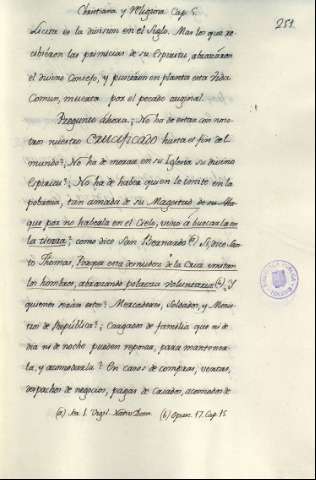 Christiana y Religiosa Cap. 5.
251.
Licita es la division en el Siglo. Mas los que re-
cibieron las primicias de su Espiritu, abrazaron
el divino Consejo, y pusieron en planta esta Vida
Comun, muerta por el pecado original.
Pregunto ahora; No ha de estar con noso-
tros nuestro Crucificado hasta el fin del
mundo?; No ha de morar en su Iglesia su divino
Espiritu?; No ha de haber quien le imite en la
pobreza, tan amada de su Magestad, de su
que por no haberla en el Cielo, vino á buscarla en
la tierra; como dice San Bernardo (a) Si, dice San-
to Thomas, Porque esta desnudez de la Cruz
los hombres, abrazando pobreza voluntaria (b). Y
quienes serian estos? Mercaderes, Soldados, y Minis-
tros de Republica?; Cargados de familia que ni de
dia ni de noche pueden reposar, para mantener-
la, y acomodarla? En casos de compras, ventas,
despachos de negocios, pagas de Criados, acomodos de
(a) Ser. 1. Vigil. Nativ. Dom. (b) Opusc. 17. Cap. 15